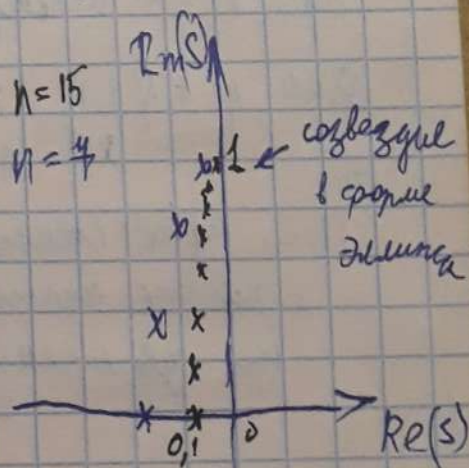 Im(S)
n=15
n=7
1
созвездие
в форме
эллипса
0,1
0
Re(s)